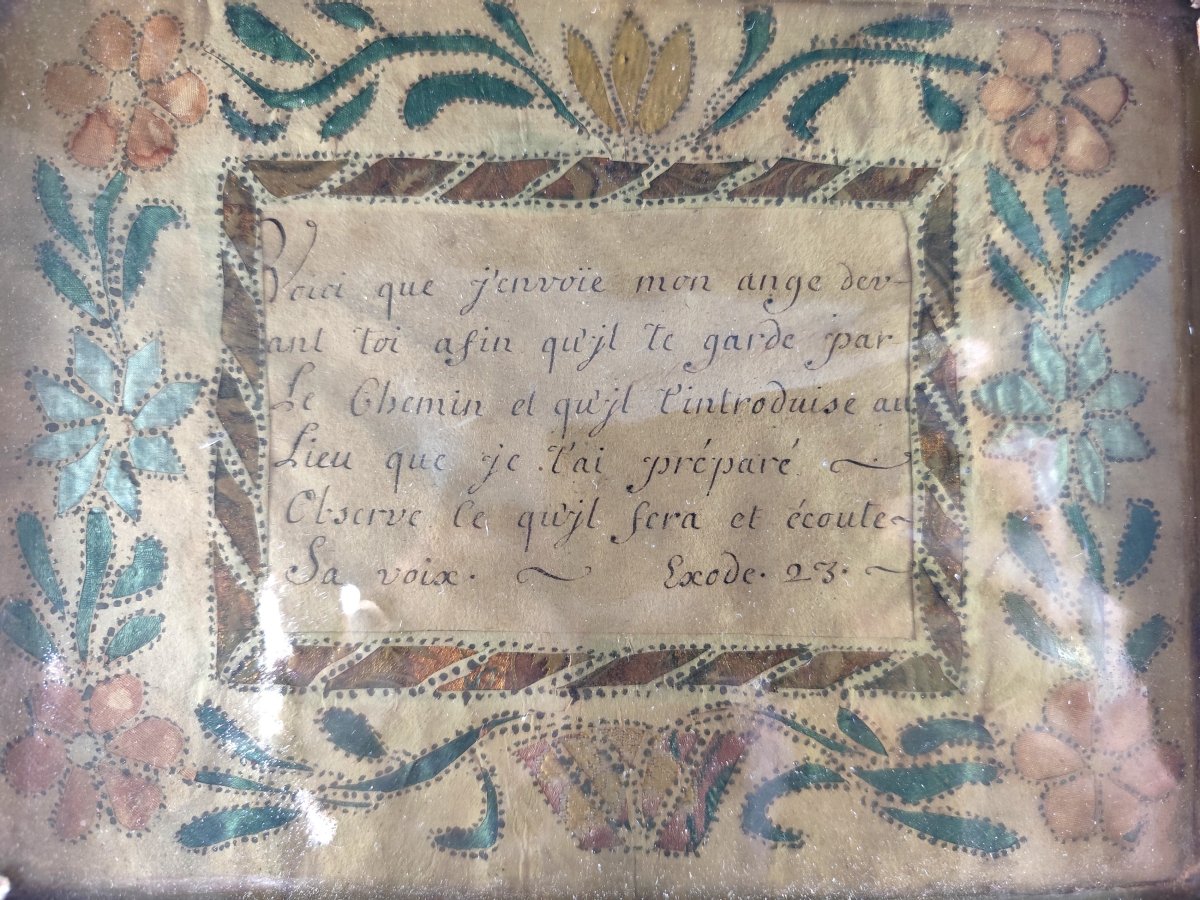 Voici que j'envoïe mon ange dev-
ant toi afin qu'jl te garde par
Le Chemin et qu'jl t'introduise au
Lieu que je t'ai préparé ~
Observe ce qu'jl fera et écoute~
Sa voix. ~ Exode. 23. ~